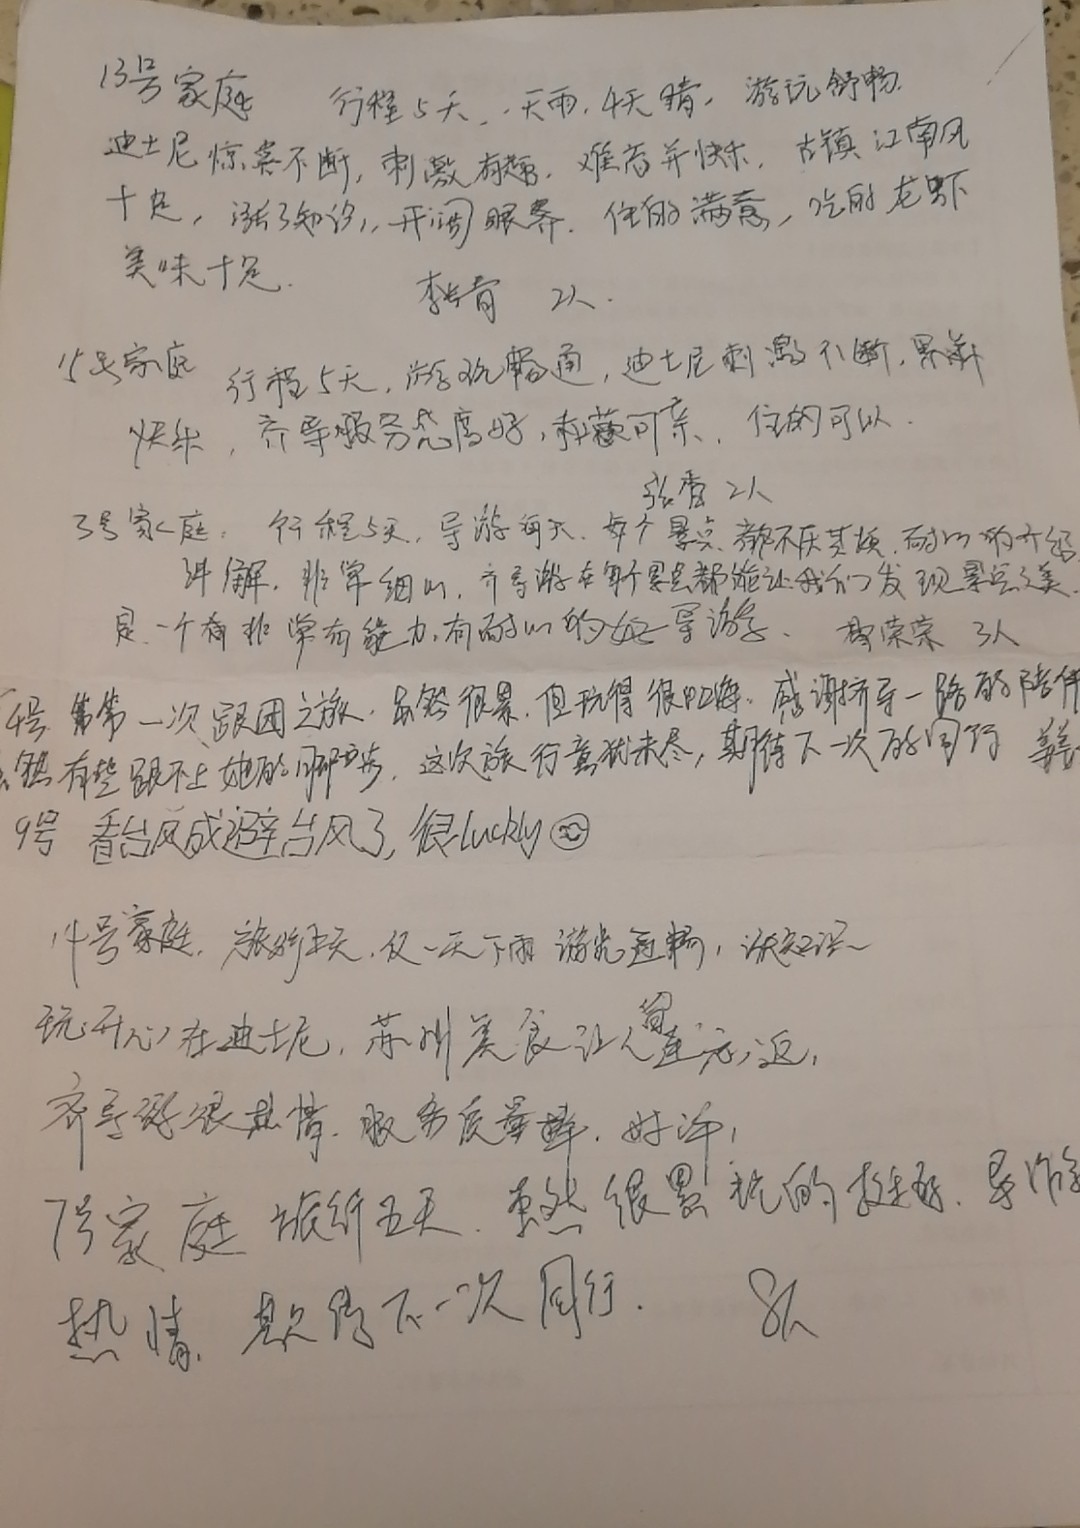 13号家庭 行程5天,一天雨,4天晴,游玩舒畅.
迪士尼惊喜不断,刺激有趣,难忘并快乐,古镇江南风
十足,涨了知识,开阔眼界.住的满意,吃的龙虾
美味十足.
李青 2人.
15号家庭 行程5天,游玩畅通,迪士尼刺激不断,累并
快乐,齐导服务态度好,和蔼可亲,住的可以.
张雪 2人
3号家庭. 行程5天,导游每天、每个景点,都不厌其烦,耐心的介绍
讲解,非常细心,齐导游在每个景点都能让我们发现景点之美.
是一个有非常有能力,有耐心的好导游.荣荣 3人
4号 第一次跟团之旅.虽然很累,但玩得很嗨.感谢齐导一路的陪伴
虽然有些跟不上她的脚步,这次旅行意犹未尽,期待下一次的同行
9号 看台风成避台风了,很Lucky
14号家庭.旅行五天,仅一天下雨 游览通畅,
玩开心在迪士尼,苏州美食让人留连忘返,
齐导游很热情,服务质量棒,好评,
7号家庭 旅行五天.虽然很累玩的挺好.导游
热情,期待下一次同行. 8人